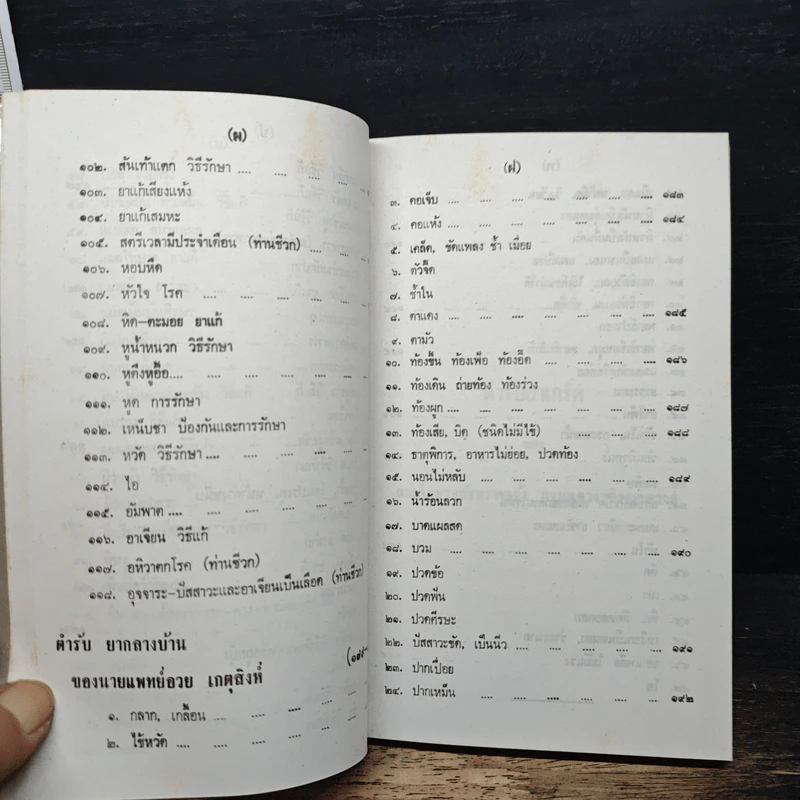 (ผ)
๑๐๒. ส้นเท้าแตก วิธีรักษา .... .... ....
๑๐๓. ยาแก้เสียงแห้ง
๑๐๔. ยาแก้เสมหะ
๑๐๕. สตรีเวลามีประจำเดือน (ท่านชีวก) ....
๑๐๖. หอบหืด
๑๐๗. หัวใจ โรค .... .... .... .... ....
๑๐๘. หิด-ตะมอย ยาแก้
๑๐๙. หูน้ำหนวก วิธีรักษา
๑๑๐. หูตึงหูอื้อ.... .... .... .... ....
๑๑๑. หูด การรักษา
๑๑๒. เหน็บชา ป้องกันและการรักษา
๑๑๓. หวัด วิธีรักษา.... .... .... ....
๑๑๔. ไอ
๑๑๕. อัมพาต.... .... .... .... ....
๑๑๖. อาเจียน วิธีแก้
๑๑๗. อหิวาตกโรค (ท่านชีวก)
๑๑๘. อุจจาระ-ปัสสาวะและอาเจียนเป็นเลือด (ท่านชีวก)
ตำรับ ยากลางบ้าน
ของนายแพทย์อวย เกตุสิงห์
๑. กลาก, เกลื้อน .... .... .... ....
๒. ไข้หวัด .... .... .... .... ....
(ฝ)
๓. คอเจ็บ .... .... .... .... .... .... ๑๘๓
๔. คอแห้ง .... .... .... .... .... .... ๑๘๔
๕. เคล็ด, ขัดแพลง ช้ำ เมื่อย
๖. ตัวจี๊ด
๗. ช้ำใน
๘. ตาแดง .... .... .... .... .... .... ๑๘๕
๙. ตามัว
๑๐. ท้องขึ้น ท้องเฟ้อ ท้องอืด .... .... .... ๑๘๖
๑๑. ท้องเดิน ถ่ายท้อง ท้องร่วง
๑๒. ท้องผูก .... .... .... .... .... .... ๑๘๗
๑๓. ท้องเสีย, บิด (ชนิดไม่มีไข้) .... .... .... ๑๘๘
๑๔. ธาตุพิการ, อาหารไม่ย่อย, ปวดท้อง
๑๕. นอนไม่หลับ .... .... .... .... .... ๑๘๙
๑๖. น้ำร้อนลวก
๑๗. บาดแผลสด
๑๘. บวม .... .... .... .... .... .... ๑๙๐
๑๙. ปวดข้อ
๒๐. ปวดฟัน
๒๑. ปวดศีรษะ
๒๒. ปัสสาวะขัด, เป็นนิ่ว .... .... .... .... ๑๙๑
๒๓. ปากเปื่อย
๒๔. ปากเหม็น .... .... .... .... .... ๑๙๒